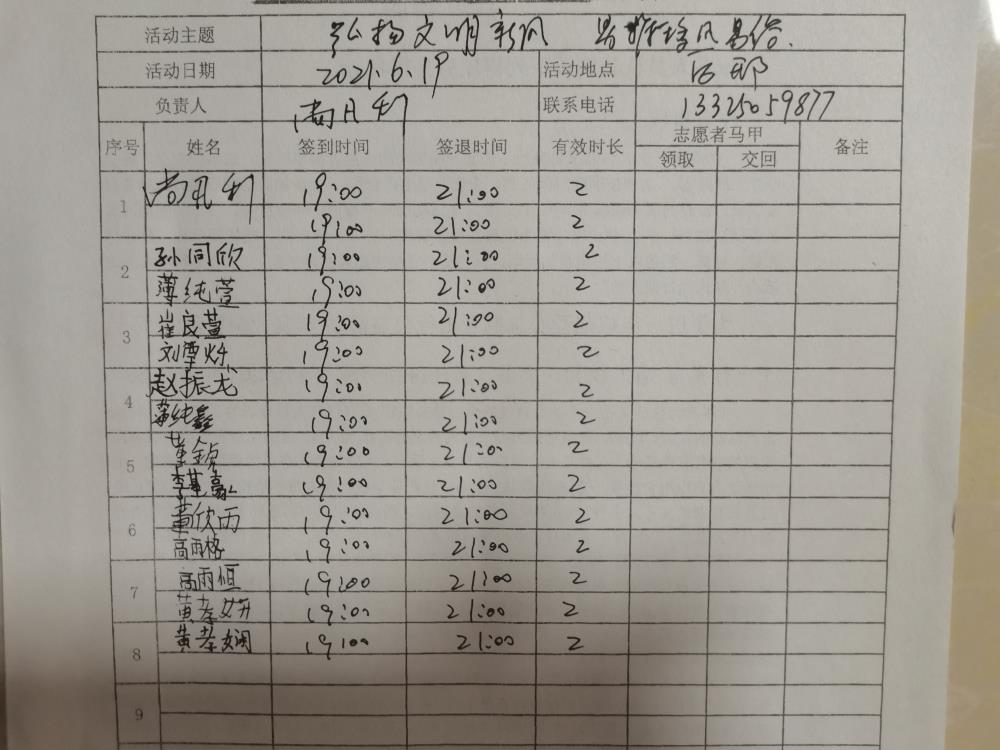 活动主题 弘扬文明新风
活动日期 2021.6.19 活动地点
负责人 联系电话 13325059877
序号 姓名 签到时间 签退时间 有效时长 志愿者马甲 备注
领取 交回
1 19:00 21:00 2
19:00 21:00 2
2 孙同欣 19:00 21:00 2
薄纯萱 19:00 21:00 2
3 崔良萱 19:00 21:00 2
刘 19:00 21:00 2
4 赵振龙 19:00 21:00 2
19:00 21:00 2
5 19:00 21:00 2
19:00 21:00 2
6 董欣雨 19:00 21:00 2
高雨格 19:00 21:00 2
7 高雨恒 19:00 21:00 2
黄孝妍 19:00 21:00 2
8 黄孝娴 19:00 21:00 2
9